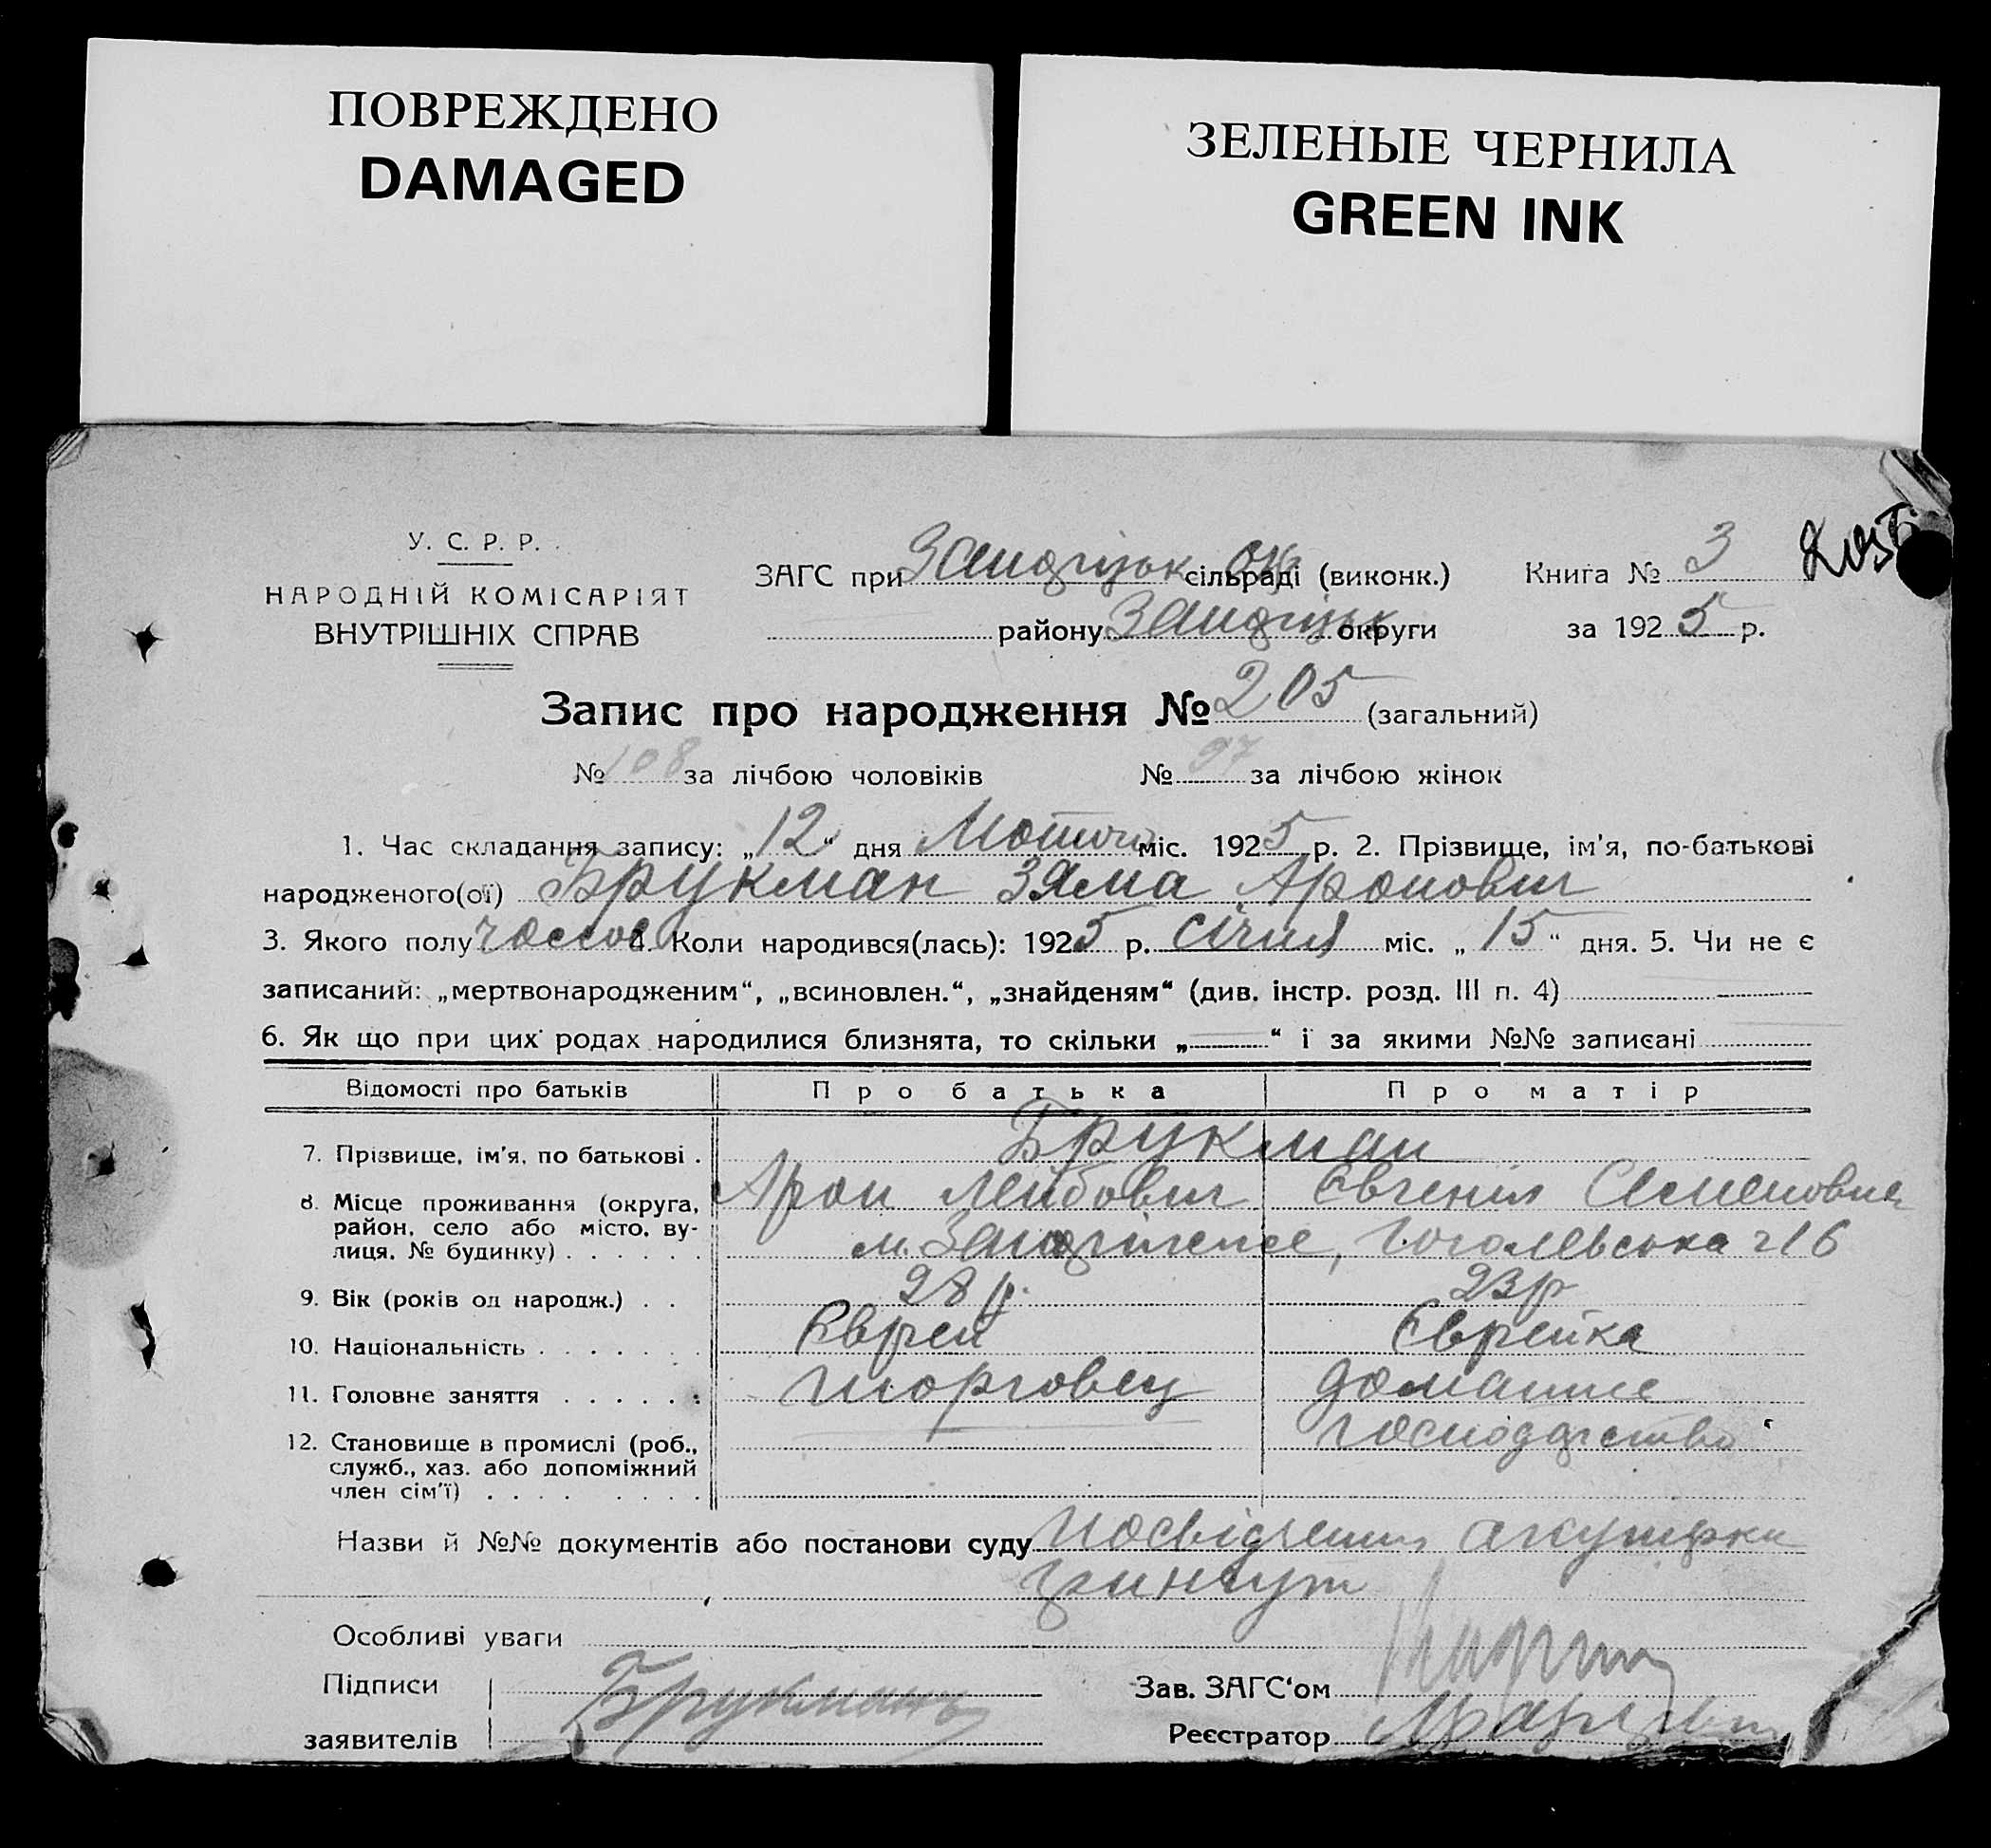 ПОВРЕЖДЕНО
DAMAGED
ЗЕЛЕНЫЕ ЧЕРНИЛА
GREEN INK
У. С. Р. Р.
НАРОДНІЙ КОМІСАРІЯТ
ВНУТРІШНІХ СПРАВ
ЗАГС при сільраді (виконк.)
району округи
Книга № 3
за 1925 р.
Запис про народження № 205 (загальний)
№ 108 за лічбою чоловіків № 97 за лічбою жінок
1. Час складання запису: „12“ дня Лютого міс. 1925 р. 2. Прізвище, ім'я, по-батькові
народженого(ої) Брукман Зяма Аронович
3. Якого полу 4. Коли народився(лась): 1925 р. січня міс. „15“ дня. 5. Чи не є
записаний: „мертвонародженим“, „всиновлен.“, „знайденям“ (див. інстр. розд. III п. 4)
6. Як що при цих родах народилися близнята, то скільки „—“ і за якими №№ записані
Відомості про батьків Про батька Про матір
7. Прізвище, ім'я, по батькові . Брукман
Арон Лейбович Євгенія Семеновна
8. Місце проживання (округа,
район, село або місто, ву-
лиця, № будинку) . . . . . . м. , Гоголевська 16
9. Вік (років од народж.) . . 28 р. 23 р
10. Національність . . . . . . . Єврей Єврейка
11. Головне заняття . . . . . . торговец домашнє
господарство
12. Становище в промислі (роб.,
служб., хаз. або допоміжний
член сім'ї) . . . . . . . .
Назви й №№ документів або постанови суду посвідчення акушерки
Особливі уваги
Підписи
заявителів Брукман
Зав. ЗАГС'ом
Реєстратор